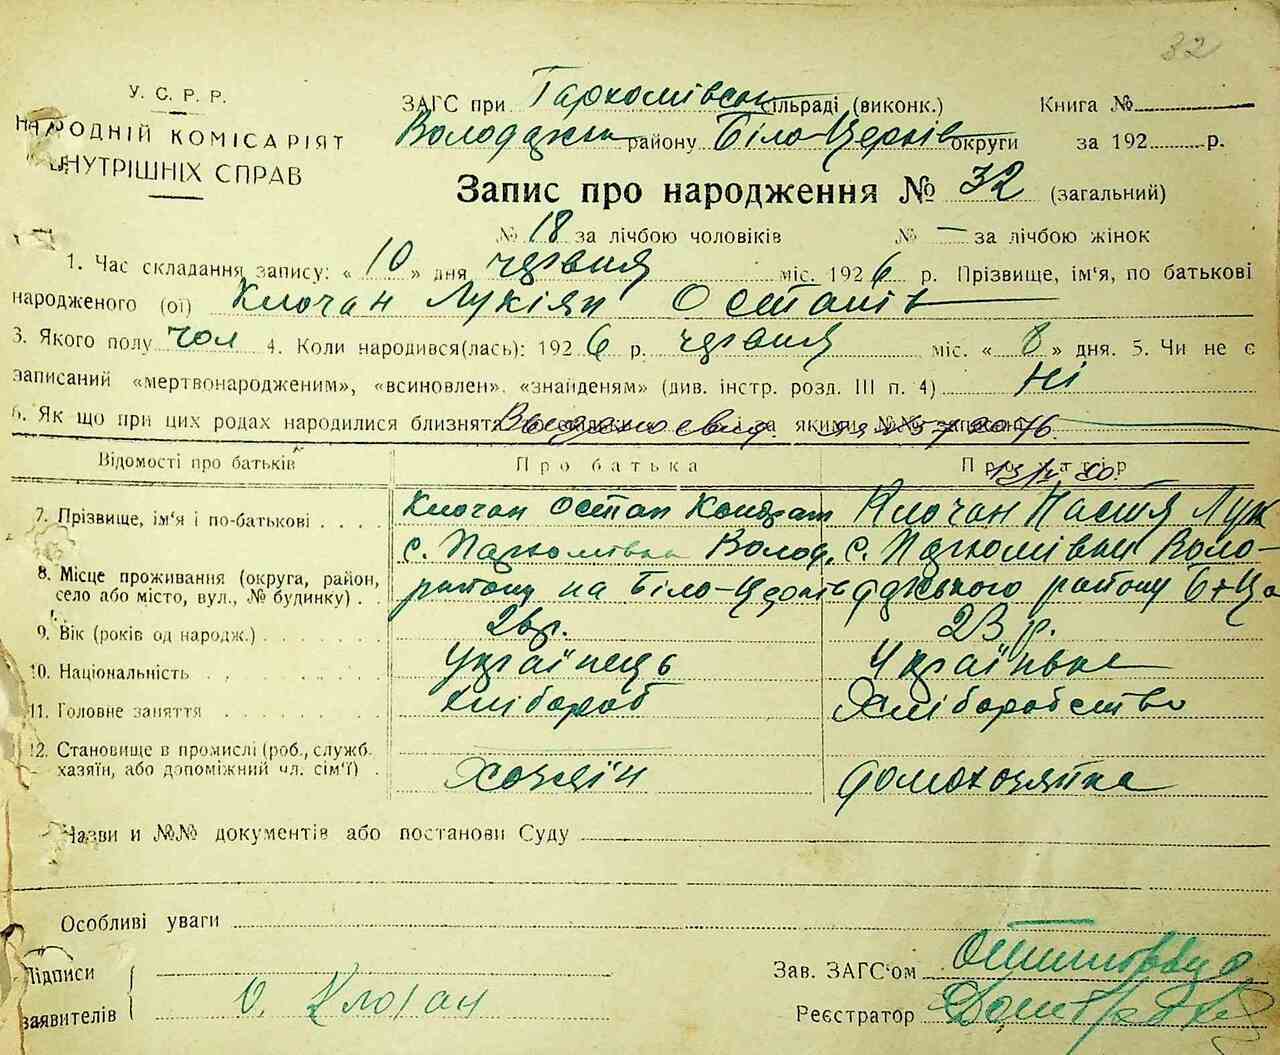 32
У. С. Р. Р.
НАРОДНІЙ КОМІСАРІЯТ
ВНУТРІШНІХ СПРАВ
ЗАГС при Пархомівськ сільраді (виконк.) Книга №
Володарськ району Біло-Церків округи за 192 р.
Запис про народження № 32 (загальний)
№ 18 за лічбою чоловіків № — за лічбою жінок
1. Час складання запису: « 10 » дня червня міс. 1926 р. Прізвище, ім'я, по батькові
народженого (ої) Клочан Лукіян Остапів
3. Якого полу чол 4. Коли народився(лась): 1926 р. червня міс. « 8 » дня. 5. Чи не є
записаний «мертвонародженим», «всиновлен», «знайденям» (див. інстр. розд. III п. 4) Ні
6. Як що при цих родах народилися близнята за якими №№ записані
Відомості про батьків Про батька Про матір
7. Прізвище, ім'я і по-батькові Клочан Остап Кондрат Клочан Настя Лук
с. Пархомівка Волод. с. Пархомівки Воло-
8. Місце проживання (округа, район, село або місто, вул., № будинку) району на Біло-Церків дарського району Б-Це
9. Вік (років од народж.) р. 23 р.
10. Національність Українець Українка
11. Головне заняття хлібороб Хліборобство
12. Становище в промислі (роб., служб. хазяїн, або допоміжний чл. сім'ї) Хозяїн домохозяйка
Назви и №№ документів або постанови Суду
Особливі уваги
Підписи
заявителів О. Клочан
Зав. ЗАГС'ом
Реєстратор